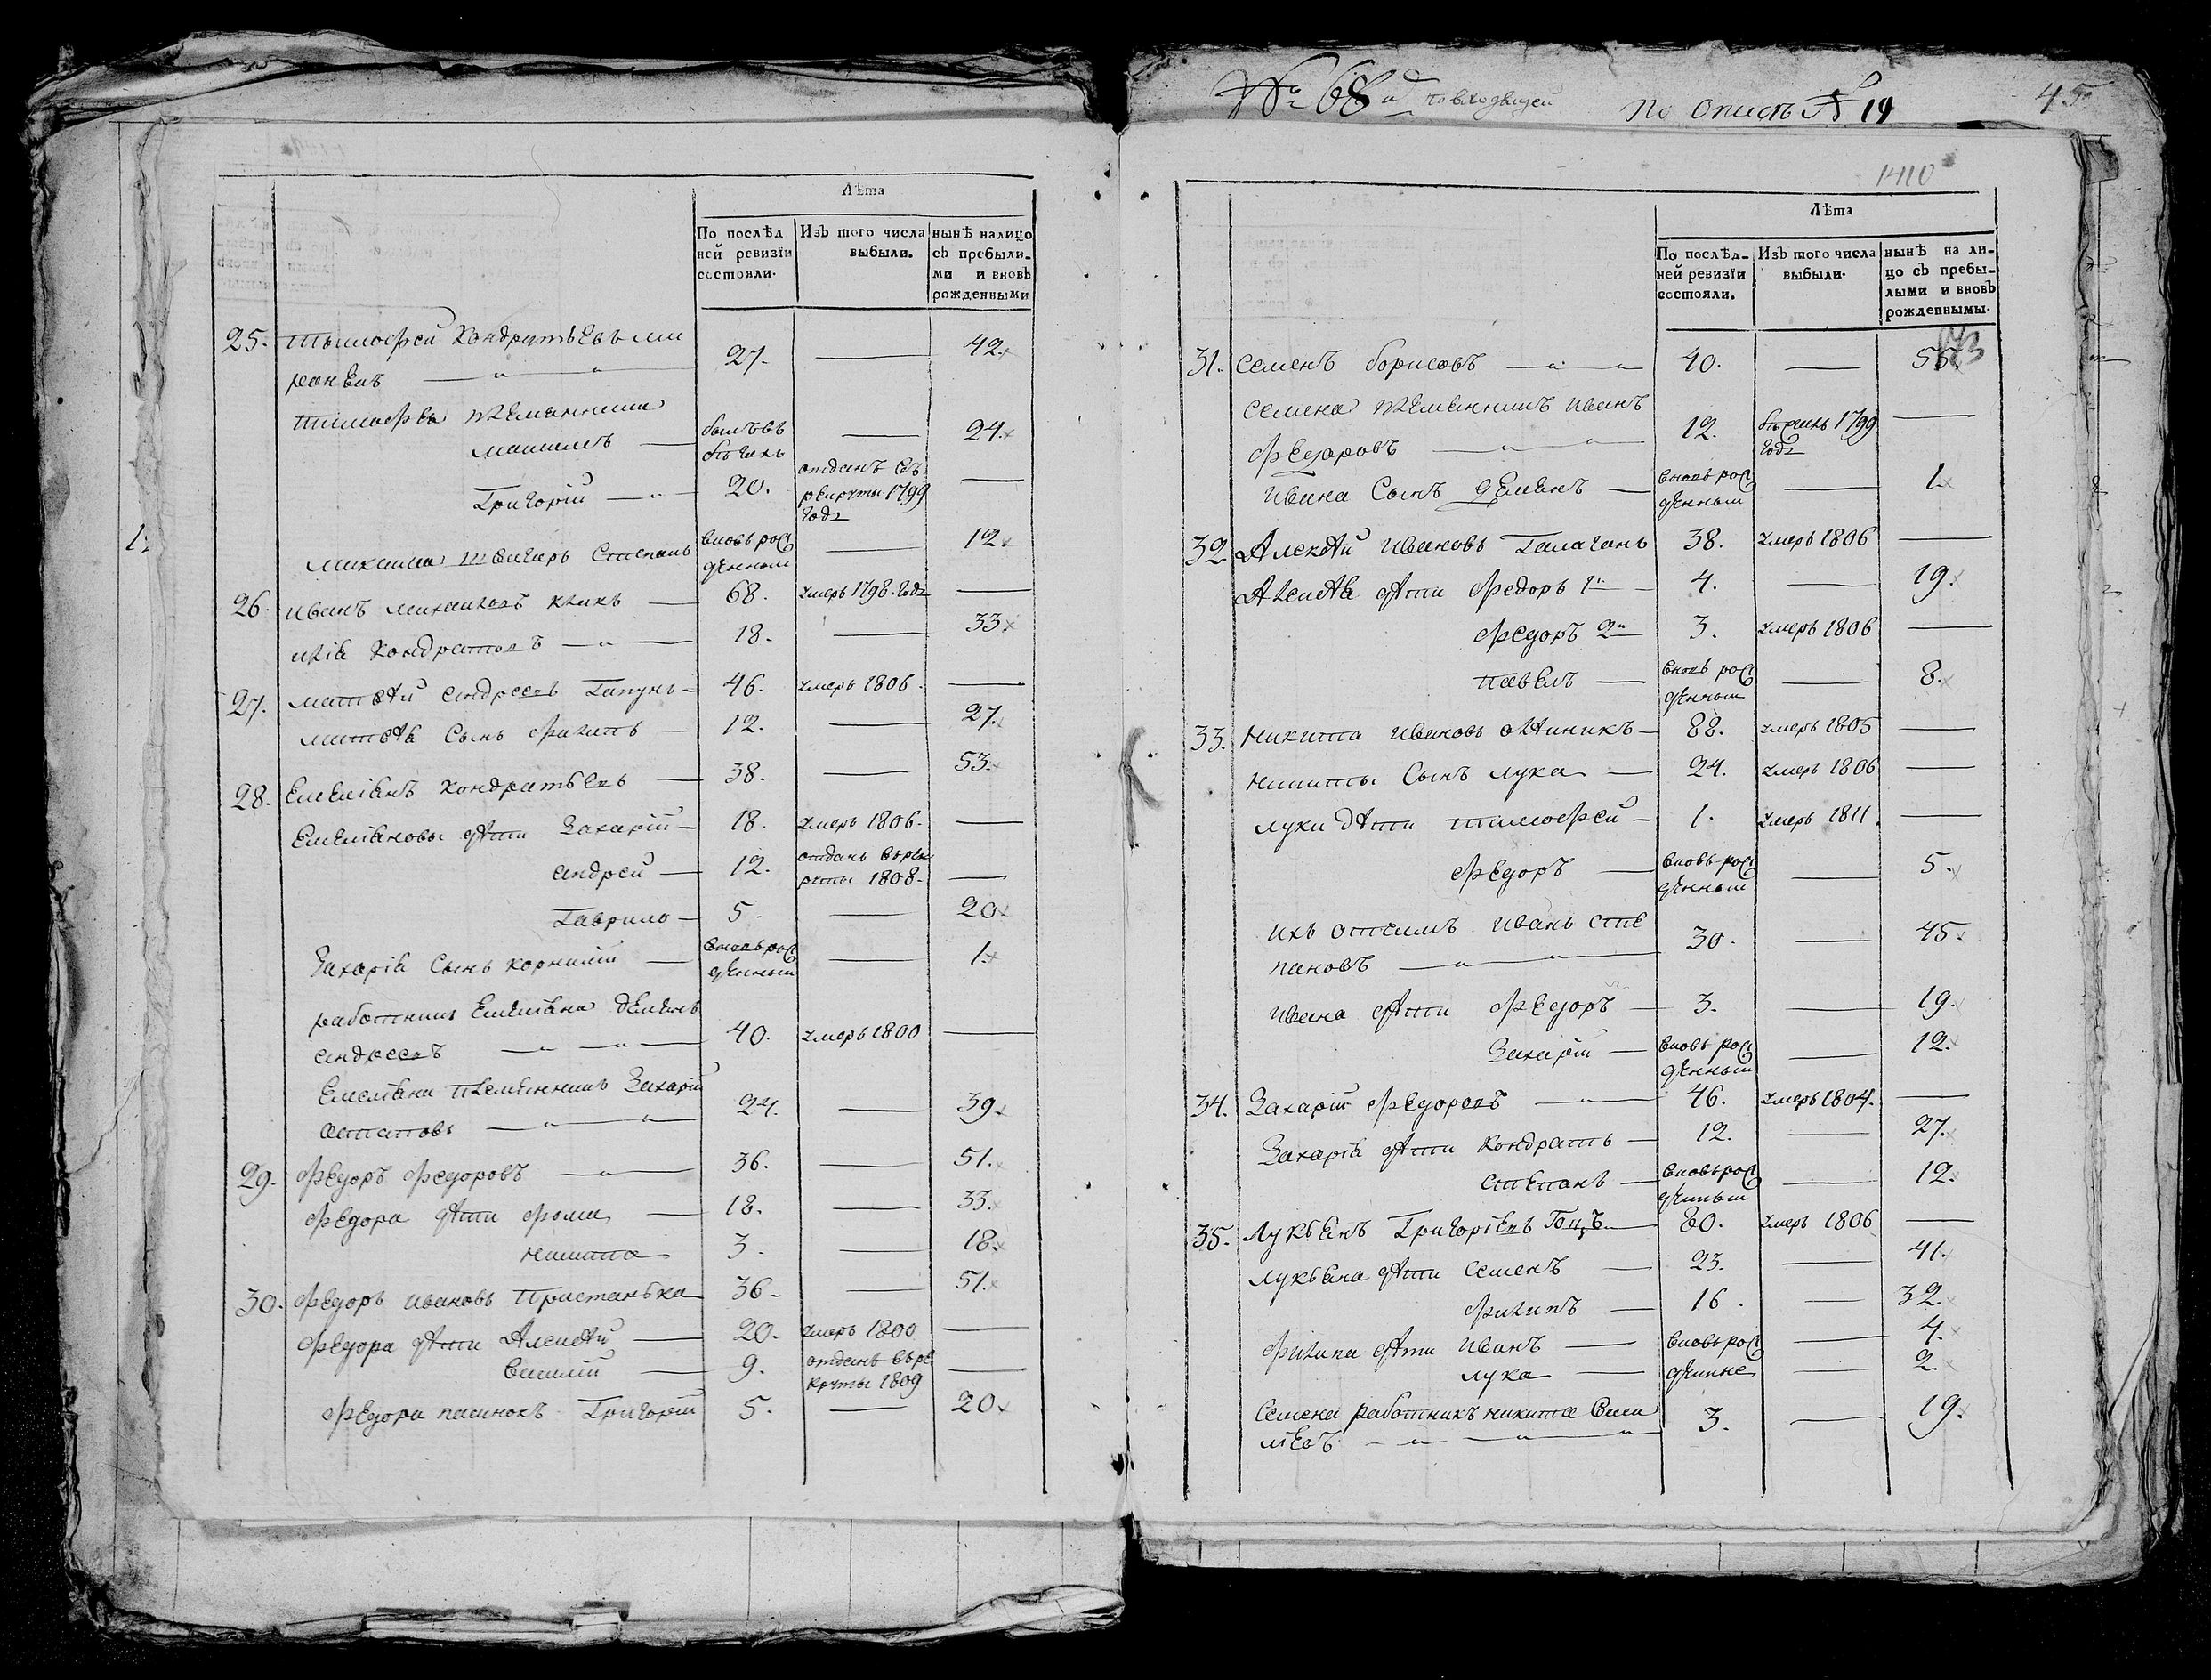 Лѣта
По послѣд
ней ревизїи
состояли.
Изъ того числа
выбыли.
нынѣ налицо
съ пребыли-
ми и вновь
рожденными
25. Тымофей Кондратьевъ
27. — 42.
Тимофея племянники
Максимъ —
былъ въ
бѣгахъ
— 24.
Григорій — 20.
отданъ въ
рекруты 1799
года
—
Максима Степанъ
вновь рож
денный
— 12.
26. Иванъ Михайловъ — 68. умеръ 1798 года —
Кондратовъ — 18. — 33.
27. Матвѣй Андреевъ Гапунъ — 46. умеръ 1806. —
Матвѣя сынъ Филипъ — 12. — 27.
28. Емеліянъ Кондратьевъ — 38. — 53.
Емеліяновы дѣти Захарій — 18. умеръ 1806. —
Андрей — 12.
отданъ въ рек
руты 1808.
—
Гаврило — 5. — 20
Захарія сынъ Корнилій —
вновь рож
денный
— 1.
работникъ Емеліяна Деменъ
Андреевъ — 40. умеръ 1800 —
Емеліяна племянникъ Захарій
— 24. — 39
29. Федоръ Федоровъ — 36. — 51.
Федора дѣти Фома — 18. — 33.
Никита 3. — 18.
30. Федоръ Ивановъ Пристанька 36 — 51.
Федора дѣти Алексѣй — 20. умеръ 1800 —
Василій — 9.
отданъ въ ре
круты 1809
—
Федора пасинокъ Григорій 5. — 20
№ 68й по входящей
По описѣ № 19
45
1410
Лѣта
По послѣд-
ней ревизїи
состояли.
Изъ того числа
выбыли.
нынѣ на ли-
цо съ пребы-
лыми и вновь
рожденными.
31. Семенъ Борисовъ — 40. — 55.
Семена племянникъ Иванъ
Федоровъ — 12.
бѣжалъ 1799
года
—
Ивана сынъ Деменъ —
вновь рож
денный
— 1.
32. Алексѣй Ивановъ Галаганъ 38. умеръ 1806 —
Алексѣя дѣти Федоръ 1й — 4. — 19.
Федоръ 2й 3. умеръ 1806 —
Павелъ —
вновь рож
денный
— 8.
33. Никита Ивановъ Олѣйникъ — 88. умеръ 1805 —
Никиты сынъ Лука — 24. умеръ 1806 —
Луки дѣти Тимофей — 1. умеръ 1811. —
Федоръ —
вновь рож
денный
— 5.
ихъ отчимъ Иванъ Сте
пановъ — 30. — 45.
Ивана дѣти Федоръ — 3. — 19.
Захарій —
вновь рож
денный
— 12.
34. Захарій Федоровъ — 46. умеръ 1804. —
Захарія дѣти Кондратъ — 12. — 27.
Степанъ —
вновь рож
денный
— 12.
35. Лукьянъ Григоріевъ Гоцъ — 80. умеръ 1806 —
Лукьяна дѣти Семенъ — 23. — 41.
Филипъ — 16. — 32.
Филипа дѣти Иванъ — вновь рож — 4.
Лука — денные — 2.
Семена работникъ Никита Васи
ліевъ — 3. — 19.